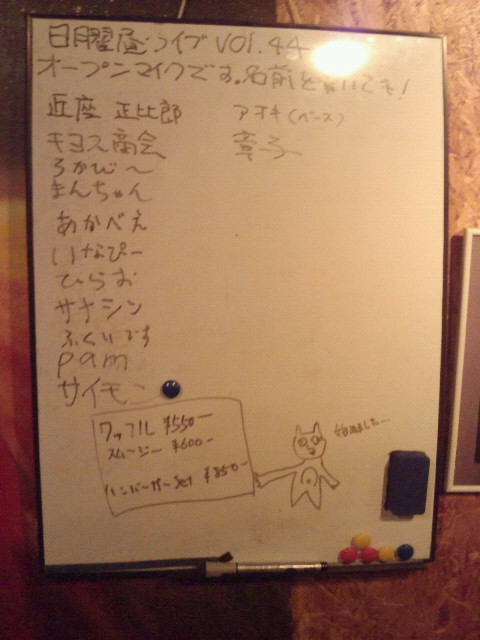 日曜昼ライブ VOl.44
オープンマイクです。名前を書いても!
近座 正比郎
キヨス商会
ろかびー
まんちゃん
あかべえ
いなぴー
ひらお
サナシン
ふくいです
pam
サイモン
アオキ(ベース)
幸子
ワッフル ¥550ー
スムージー ¥600ー
ハンバーガーset ¥850ー
始めました…